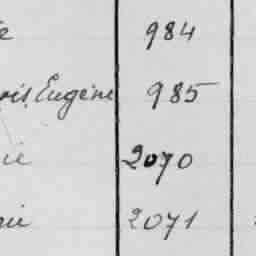 e 984
ois Eugène 985
ie 2070
rie 2071